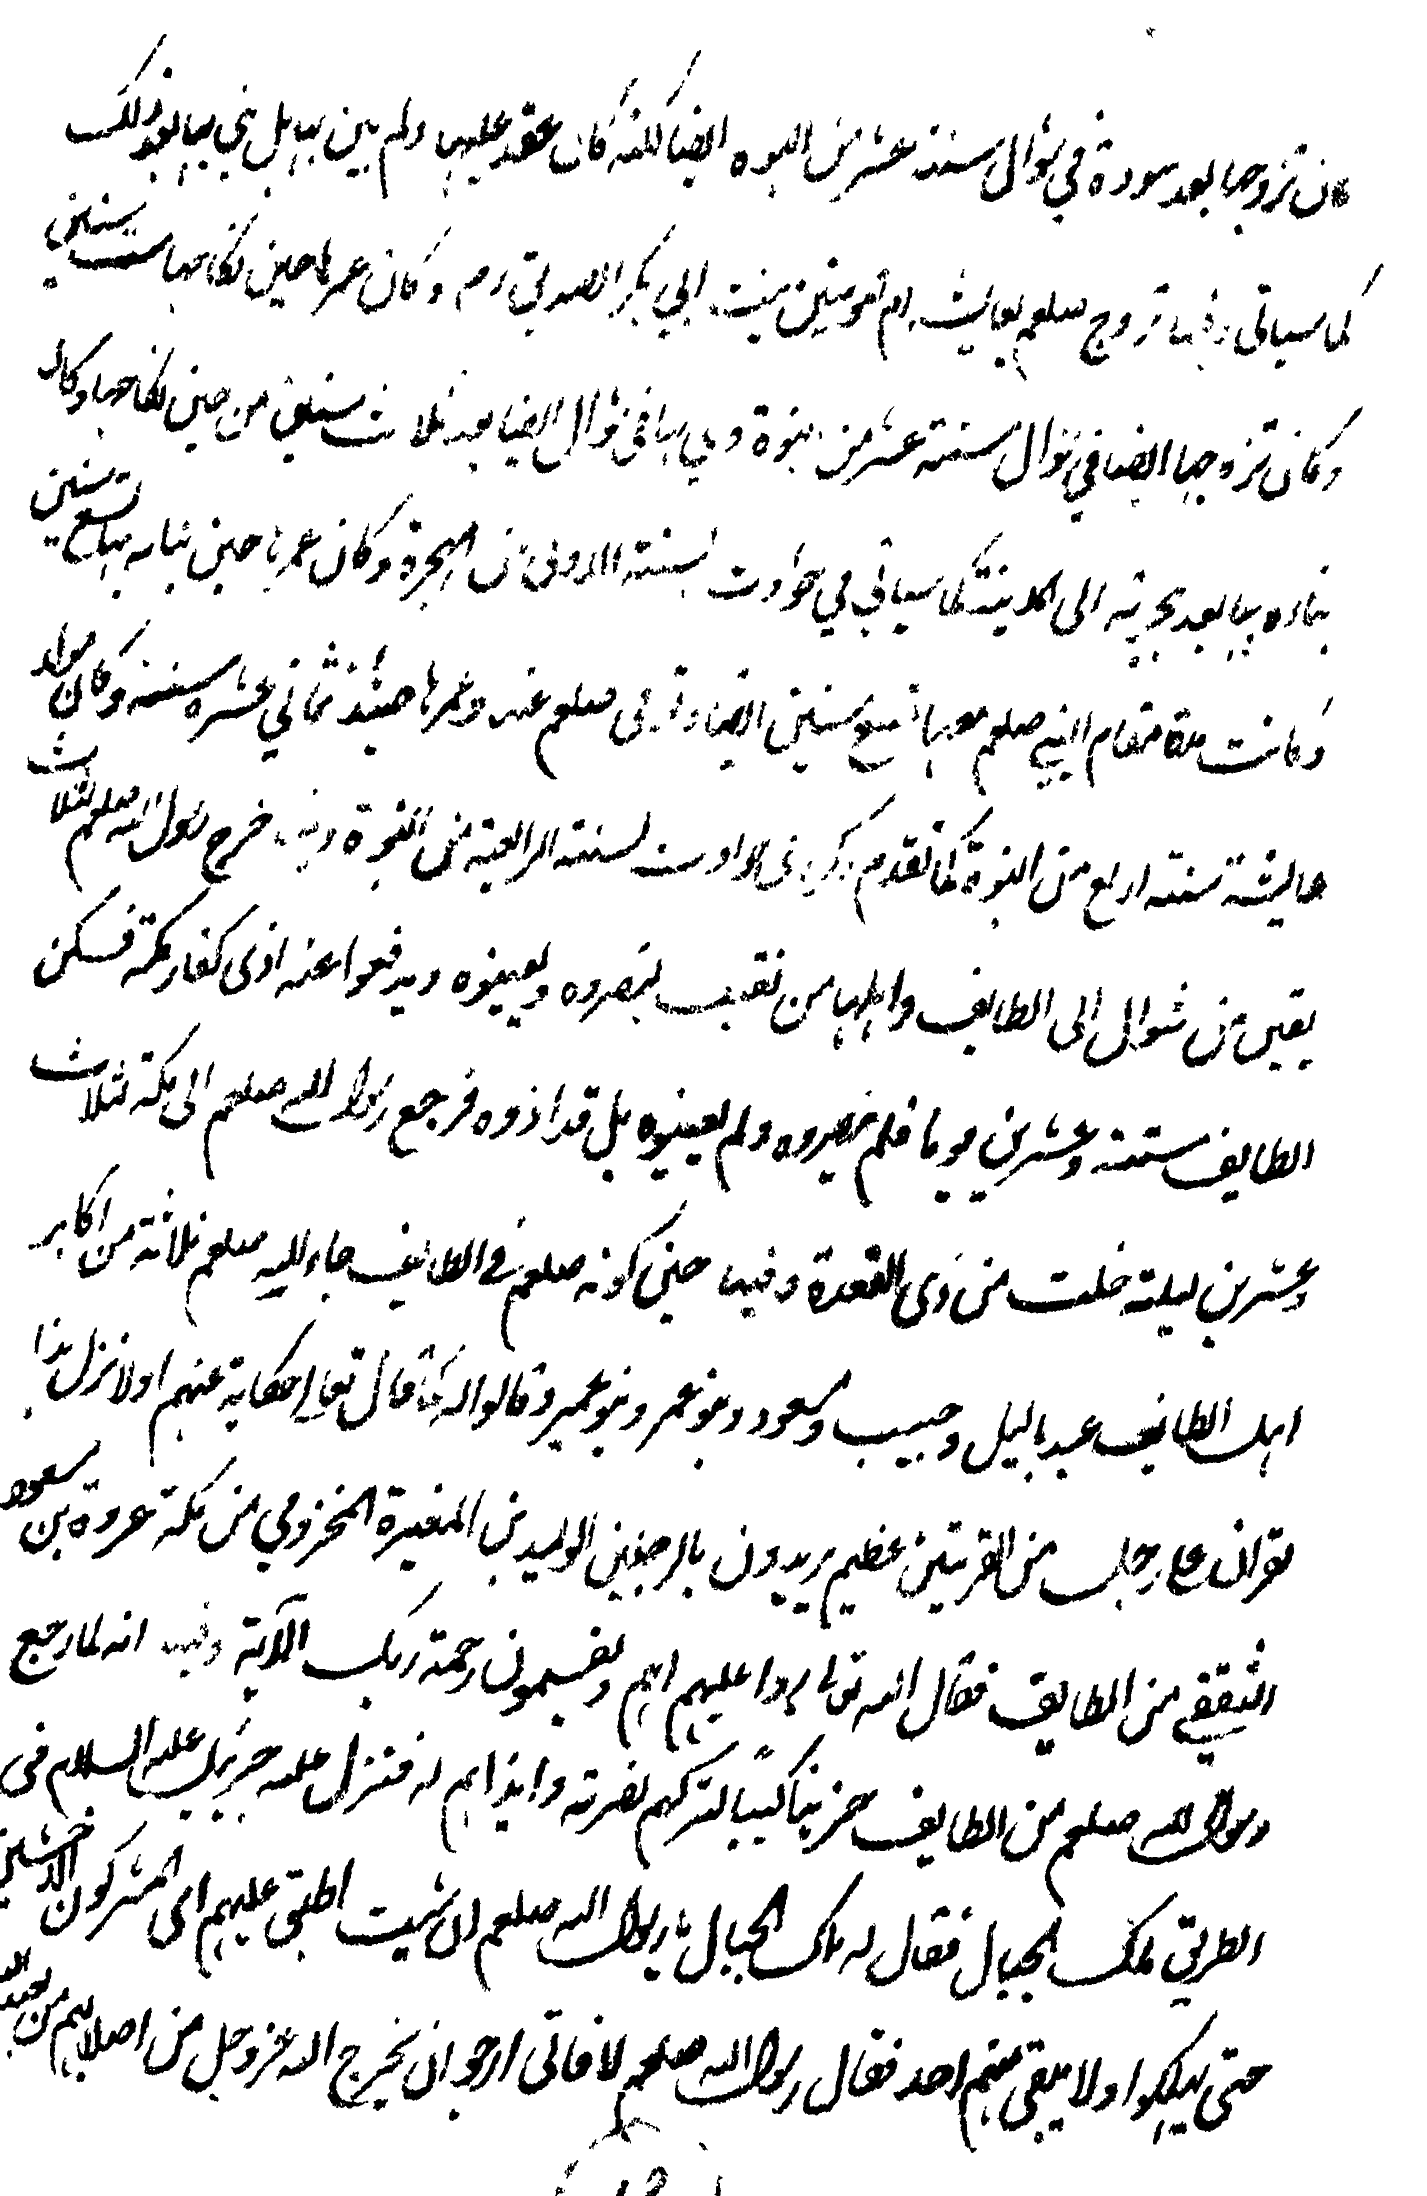 كان تزوجها بعد سودة في شوال سنة عشر من النبوة ايضا لكنه كان عقد عليها ولم يبن بها بل بني بها بعد ذلك
كما سياتي وفيها تزوج صلعم بعايشة ام المومنين بنت ابي بكر الصديق رم وكان عمرها حين نكاحها ست سنين
وكان تزوجها ايضا في شوال سنة عشر من النبوة وبني بها في شوال ايضا بعد ثلاث سنين من حين نكاحها وكان
بناؤه بها بعد هجرته الى المدينة كما سياتي في حوادث السنة الاولى من الهجرة وكان عمرها حين بنايه بها تسع سنين
وكانت مدة مقام النبي صلعم معها تسع سنين ايضا وتوفي صلعم عنها وعمرها حينئذ ثماني عشره سنة وكان مولد
عايشة سنة اربع من النبوة كما تقدم ذكره في حوادث السنة الرابعة من النبوة وفيها خرج رسول الله صلعم لثلاث
بقين من شوال الى الطايف واهلها من ثقيف لينصروه ويعينوه ويدفعوا عنه اذى كفار مكة فسكن
الطايف ستة وعشرين يوما فلم ينصروه ولم يعينوه بل قد اذوه فرجع رسول الله صلعم الى مكة لثلاث
وعشرين ليلة خلت من ذى القعدة وفيها حين كونه صلعم في الطايف جاء اليه صلعم ثلاثة من اكابر
اهل الطايف عبد ياليل وحبيب ومسعود وبنو عمرو بنو عمير وقالوا له كما قال تعالى حكاية عنهم اولا نزل هذا
القران على رجل من القريتين عظيم يريدون بالرجلين الوليد بن المغيرة المخزومي من مكة عروة بن مسعود
الثقفي من الطايف فقال الله تعالى ردا عليهم اهم يقسمون رحمة ربك الآية وفيها انه لما رجع
رسول الله صلعم من الطايف حزينا كئيبا لتركهم نصرته وايذايهم له فنزل عليه جبريل عليه السلام في
الطريق بملك الجبال فقال له ملك الجبال يا رسول الله صلعم ان شيت اطبق عليهم اى المشركون الاخشبين
حتى يهلكوا ولا يبقى منهم احد فقال رسول الله صلعم لا فاني ارجو ان يخرج الله عز وجل من اصلابهم من يعبد الله